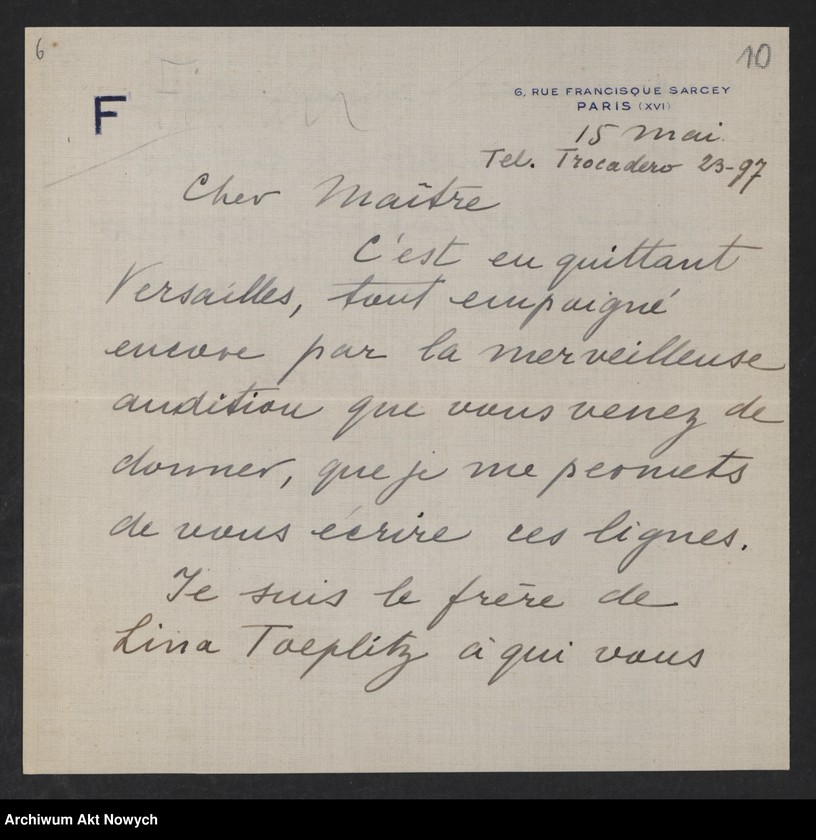 6
10
F
6, RUE FRANCISQUE SARCEY
PARIS (XVI)
15 mai.
Tel. Trocadero 23-97
Cher Maître
C'est en quittant
Versailles, tout empoigné
encore par la merveilleuse
audition que vous venez de
donner, que je me permets
de vous écrire ces lignes.
Je suis le frère de
Lina Toeplitz à qui vous
Archiwum Akt Nowych